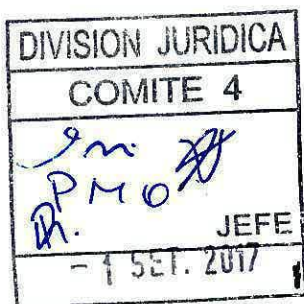 DIVISION JURIDICA
COMITE 4
PMO
JEFE
- 1 SET. 2017